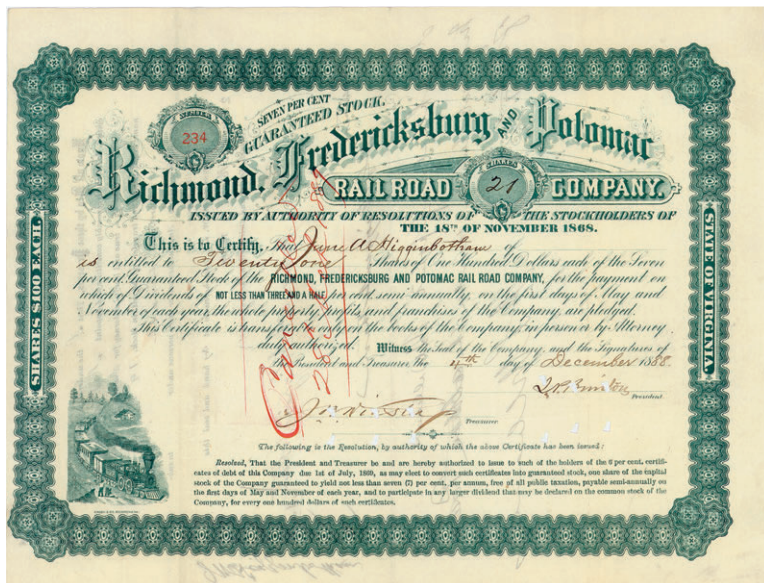 NUMBER
234
SEVEN PER CENT
GUARANTEED STOCK.
Richmond, Fredericksburg AND Potomac
RAIL ROAD SHARES 21 COMPANY.
ISSUED BY AUTHORITY OF RESOLUTIONS OF THE STOCKHOLDERS OF
THE 18TH OF NOVEMBER 1868.
This is to Certify, That June A Higginbotham of
is entitled to Twenty one Shares of One Hundred Dollars each of the Seven
per cent. Guaranteed Stock of the RICHMOND, FREDERICKSBURG AND POTOMAC RAIL ROAD COMPANY, for the payment on
which of Dividends of NOT LESS THAN THREE AND A HALF per cent semi annually, on the first days of May and
November of each year, the whole property, profits, and franchises of the Company, are pledged.
This Certificate is transferable only on the books of the Company, in person or by Attorney
duly authorized. Witness the Seal of the Company, and the Signatures of
the President and Treasurer, the 4th day of December 1888.
President.
Treasurer
Cancelled
The following is the Resolution, by authority of which the above Certificate has been issued:
Resolved, That the President and Treasurer be and are hereby authorized to issue to such of the holders of the 6 per cent. certifi-
cates of debt of this Company due 1st of July, 1869, as may elect to convert such certificates into guaranteed stock, one share of the capital
stock of the Company guaranteed to yield not less than seven (7) per cent. per annum, free of all public taxation, payable semi-annually on
the first days of May and November of each year, and to participate in any larger dividend that may be declared on the common stock of the
Company, for every one hundred dollars of such certificates.
SHARES $100 EACH.
STATE OF VIRGINIA